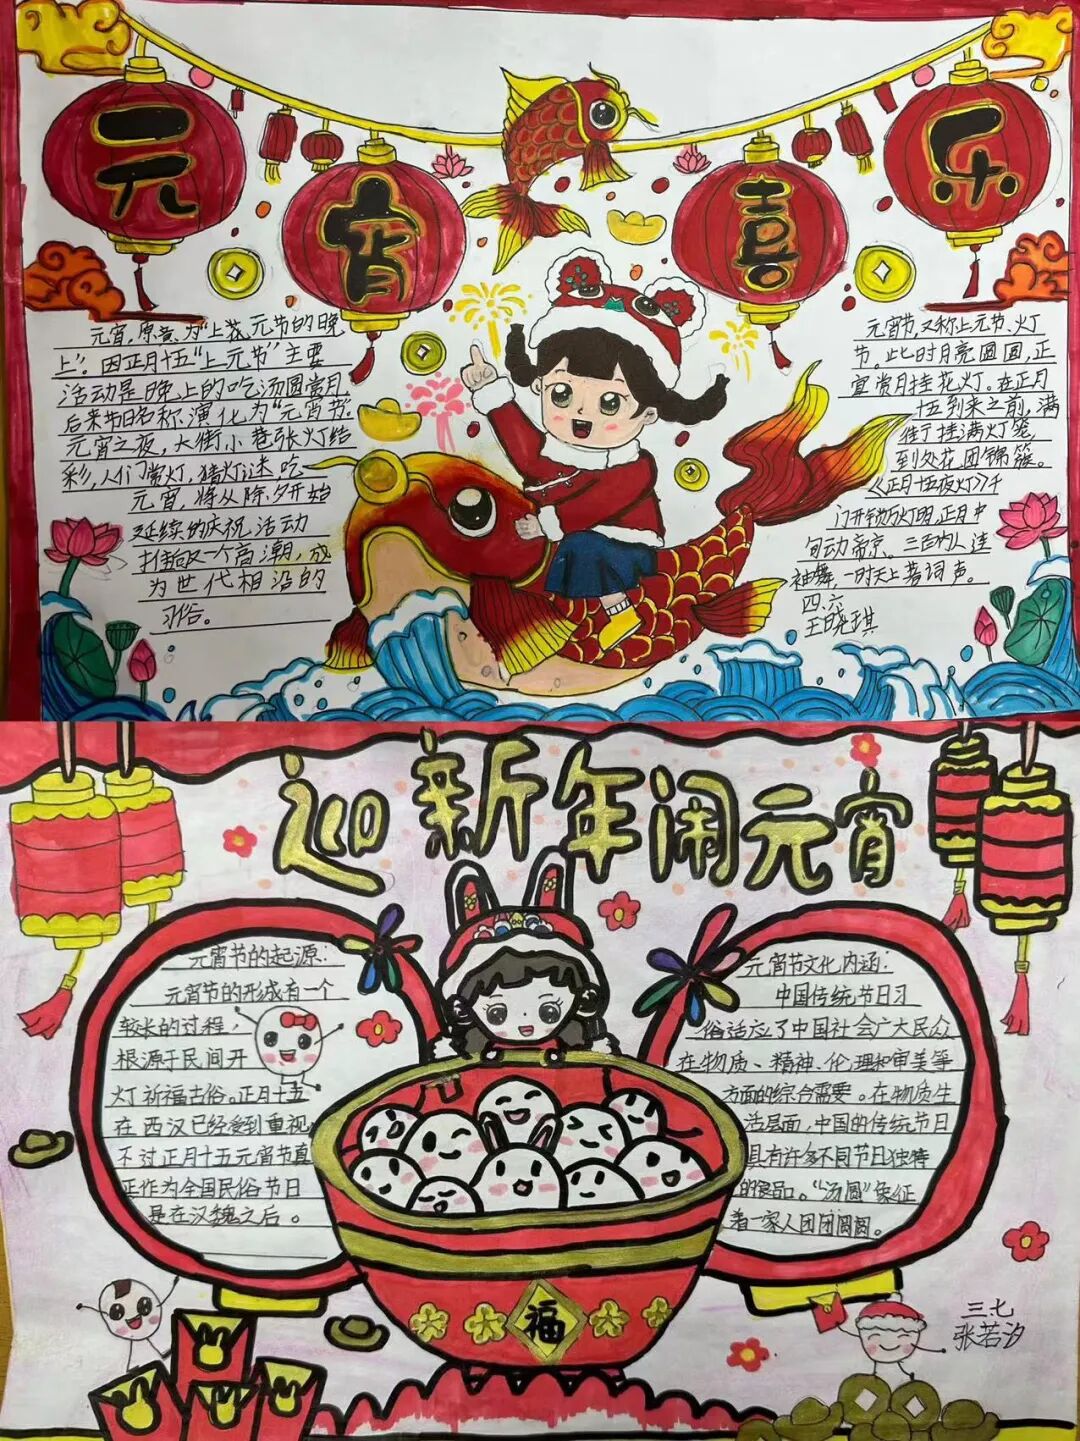 元宵喜乐
元宵，原意为“上花元节的晚
上”。因正月十五“上元节”主要
活动是晚上的吃汤圆赏月，
后来节日名称演化为“元宵节”.
元宵之夜，大街小巷张灯结
彩，人们赏灯，猜灯谜，吃
元宵，将从除夕开始
延续的庆祝活动
推一个高潮，成
为世代相沿的
习俗。
元宵节，又称上元节、灯
节。此时月亮圆圆，正
宜赏月挂花灯。在正月
十五到来之前，满
街挂满灯笼，
到处花团锦簇。
《正月十五夜灯》千
门开锁万灯明，正月中
旬动帝京。三百内人连
袖舞，一时天上著词声。
四、六
王晓琪
迎新年闹元宵
元宵节的起源：
元宵节的形成有一个
较长的过程，
根源于民间开
灯祈福古俗。正月十五
在西汉已经受到重视
不过正月十五元宵节真
正作为全国民俗节日
是在汉魏之后。
元宵节文化内涵：
中国传统节日习
俗适应了中国社会广大民众
在物质、精神、伦理和审美等
方面的综合需要。在物质生
活层面，中国的传统节日
具有许多不同节日独特
的食品。“汤圆”象征
着一家人团团圆圆。
福
三、七
张若汐